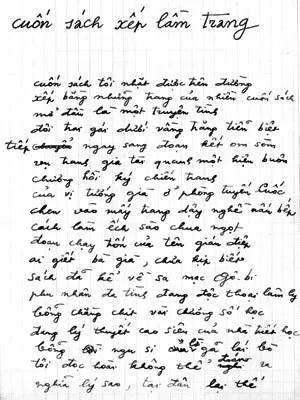 cuốn sách xếp lầm trang
cuốn sách tôi nhặt được trên đường
xếp bằng những trang của nhiều cuốn sách
mở đầu là một truyện tình
đôi trai gái dưới vầng trăng tiễn biệt
tiếp ngay sang đoạn kết om sòm
vụ tranh gia tài quanh một hiệu buôn
chương hồi ký chiến tranh
của vị tướng già ở phòng tuyến
chen vào mấy trang dạy nghề nấu bếp
cách làm ếch xào chua ngọt
đoạn chạy trốn của tên gián điệp
ai giết bà già, chưa kịp biết
sách đã kể về sa mạc Gô bi
phu nhân đa tình đang độc thoại lâm ly
bỗng chằng chịt vài chương số học
đang lý thuyết cao siêu của nhà triết học
bỗng ngu si gã lái bò
tôi đọc hoài không thể đoán ra
nghĩa lý sao, tại đâu lại thế